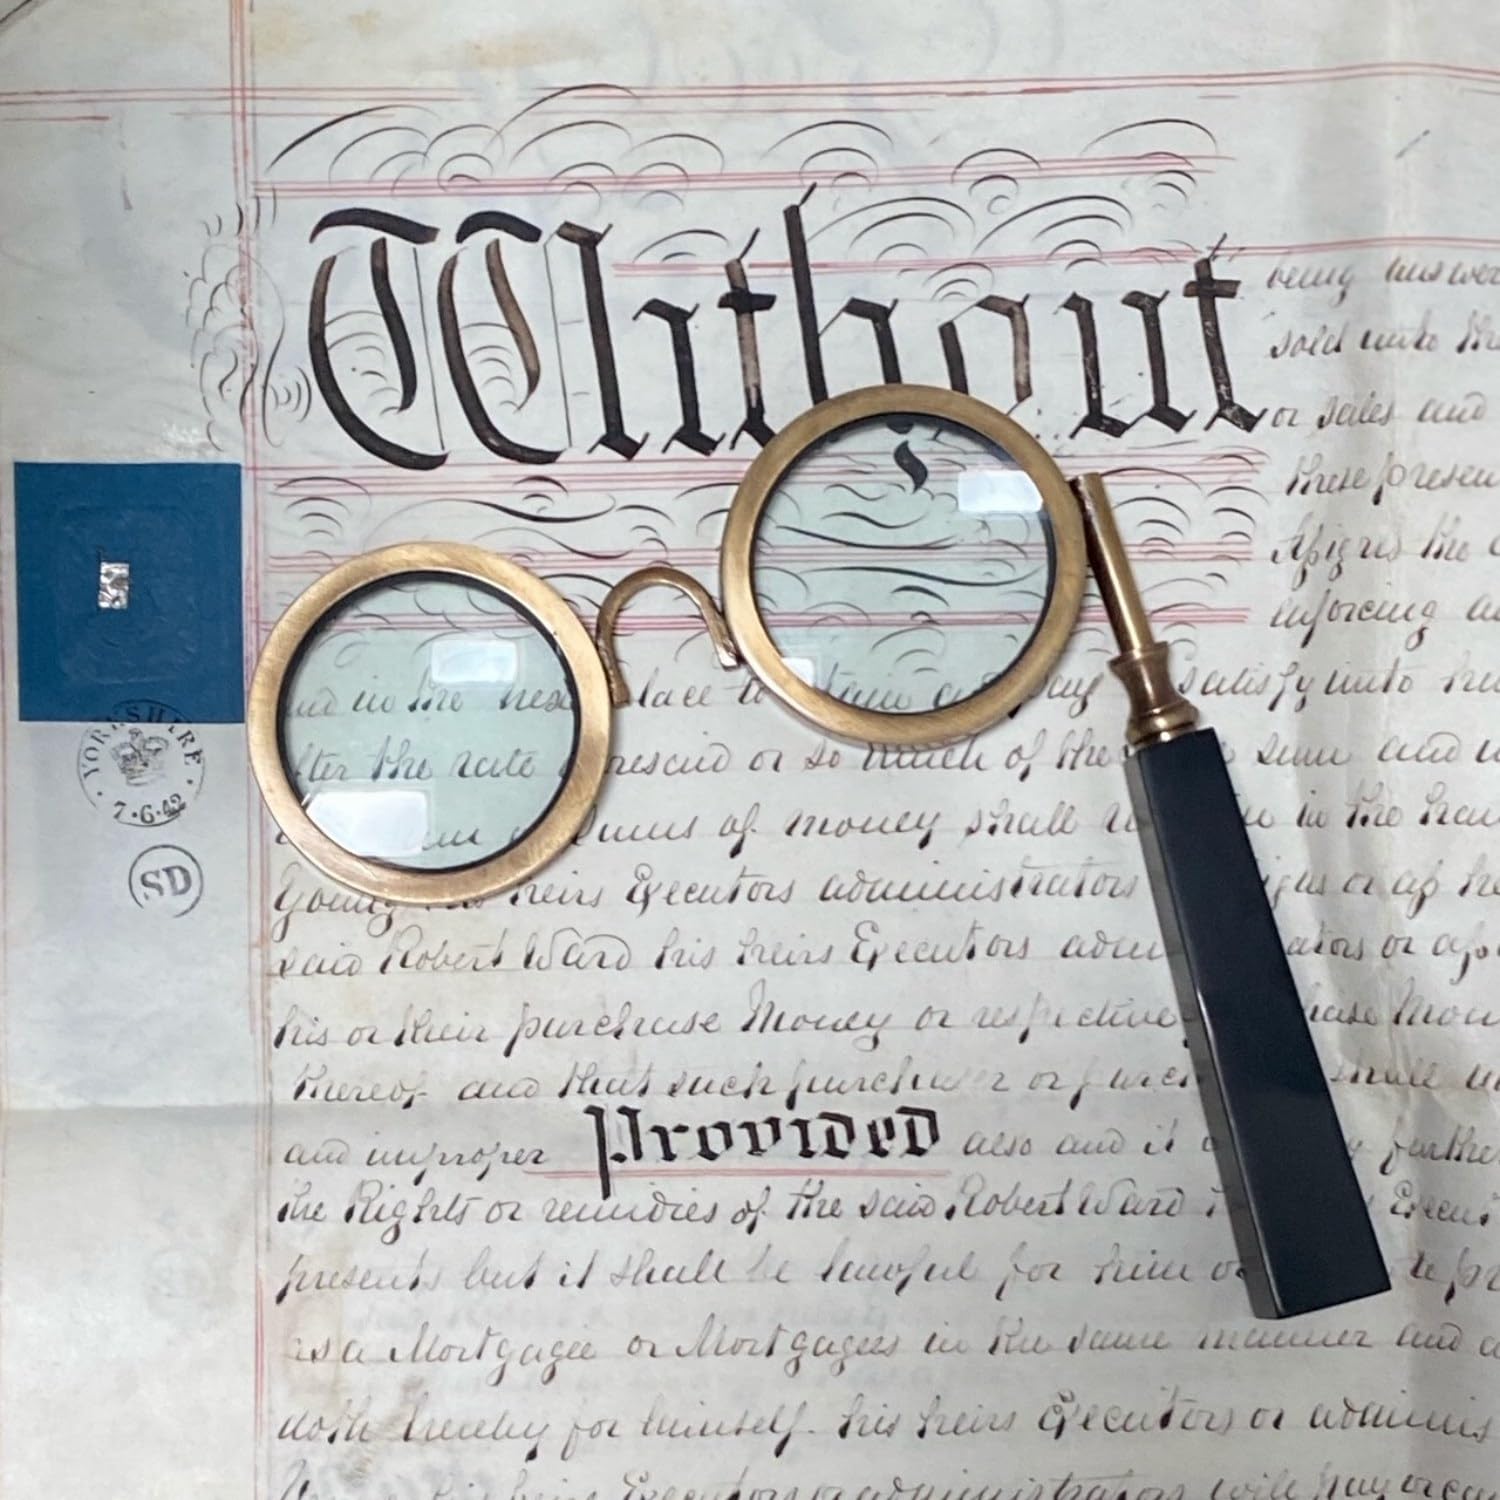 Without
being answer
sold unto the
or sales and
these presen
enforcing
and in the next place to and pay satisfy unto
after the rate aforesaid or so much of the sum and
sums of money shall in the
YORKSHIRE
7·6·42
SD
Young heirs Executors administrators or
said Robert Ward his heirs Executors ators or
his or their purchase Money or respective Mon
thereof and that such purchaser or shall
and improper Provided also and it further
the Rights or remidies of the said Robert Ward Execut
presents but it shall be lawful for him
as a Mortgagee or Mortgagees in the same manner and
doth hereby for himself his heirs Executors or adminis
his heirs Executors or administrators will pay or cau